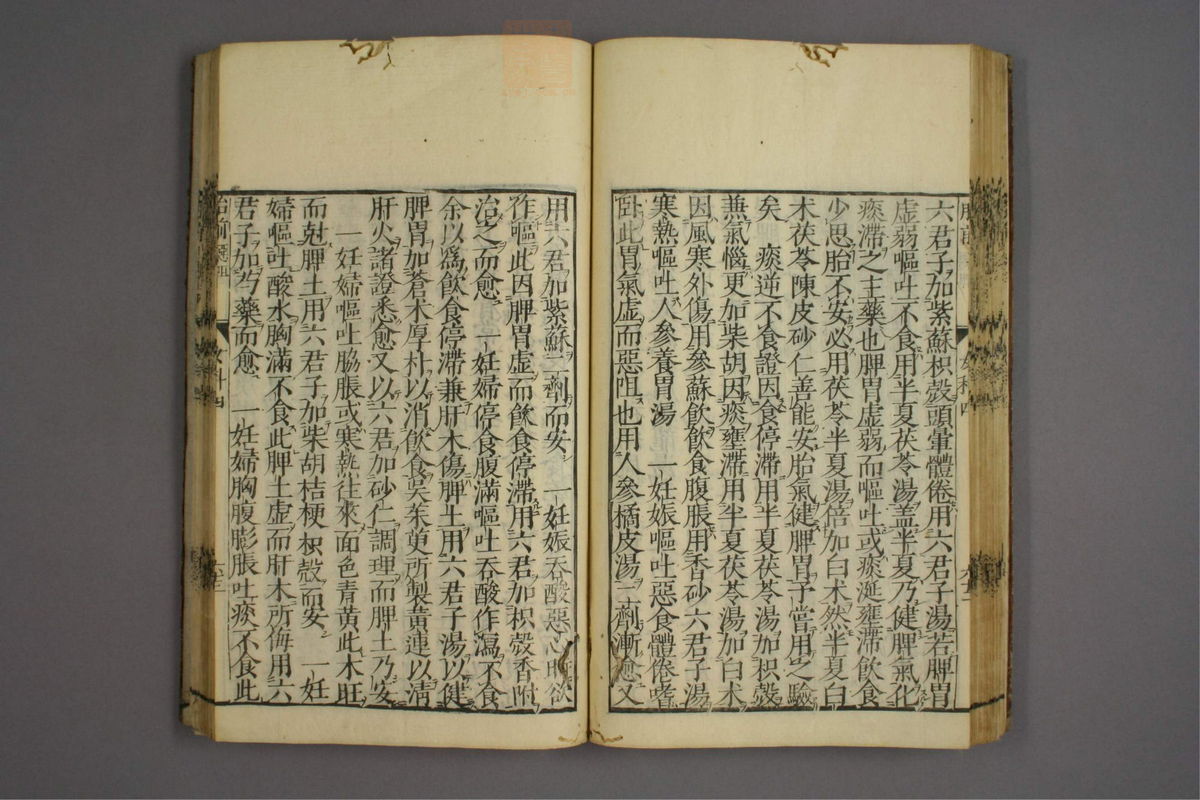 六君子加紫蘇枳殼頭暈體倦用六君子湯若脾胃
虛弱嘔吐不食用半夏茯苓湯盖半夏乃健脾氣化
痰滯之主藥也脾胃虛弱而嘔吐或痰涎壅滯飲食
少思胎不安必用茯苓半夏湯倍加白术然半夏白
术茯苓陳皮砂仁善能安胎氣健脾胃予嘗用之驗
矣　痰逆不食證因食停滯用半夏茯苓湯加枳殼
兼氣惱更加柴胡因痰壅滯用半夏茯苓湯加白术
因風寒外傷用參蘇飲飲食腹脹用香砂六君子湯
寒熱嘔吐人參養胃湯　一妊娠嘔吐惡食體倦嗜
卧此胃氣虛而惡阻也用人參橘皮湯二劑漸愈又
用六君加紫蘇二劑而安　一妊娠吞酸惡心時欲
作嘔此因脾胃虛而飲食停滯用六君加枳殼香附
治之而愈　一妊婦停食腹滿嘔吐吞酸作瀉不食
余以爲飲食停滯兼肝木傷脾土用六君子湯以健
脾胃加蒼术厚朴以消飲食吳茱萸所製黃連以清
肝火諸證悉愈又以六君加砂仁調理而脾土乃安
一妊婦嘔吐脇脹或寒熱往來面色青黃此木旺
而尅脾土用六君子加柴胡桔梗枳殼而安　一妊
婦嘔吐酸水胸滿不食此脾土虛而肝木所侮用六
君子加芍藥而愈　一妊婦胸腹膨脹吐痰不食此